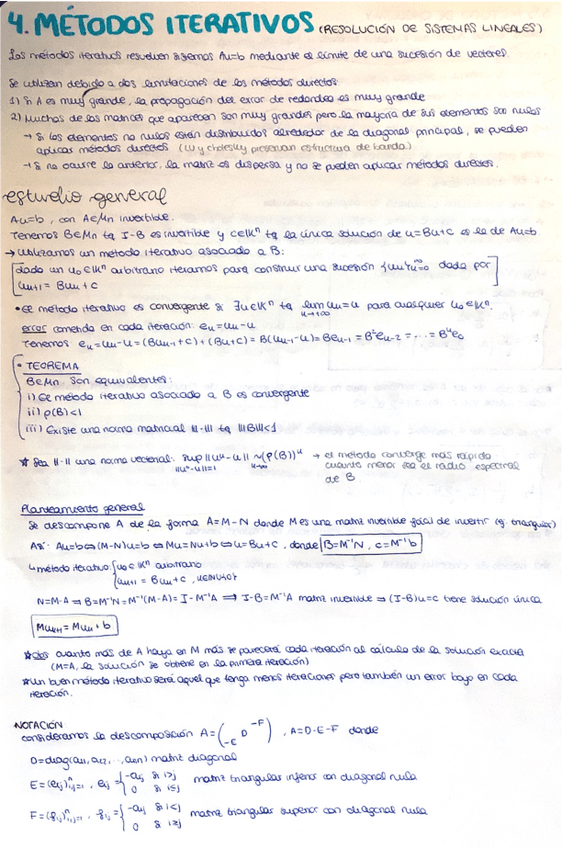 4. MÉTODOS ITERATIVOS (RESOLUCIÓN DE SISTEMAS LINEALES)
Los métodos iterativos resuelven sistemas Au=b mediante el límite de una sucesión de vectores.
Se utilizan debido a dos limitaciones de los métodos directos:
1) Si A es muy grande, la propagación del error de redondeo es muy grande
2) Muchas de las matrices que aparecen son muy grandes pero la mayoría de sus elementos son nulos
→ Si los elementos no nulos están distribuidos alrededor de la diagonal principal, se pueden
aplicar métodos directos (LU y Cholesky preservan estructura de banda)
→ Si no ocurre lo anterior, la matriz es dispersa y no se pueden aplicar métodos directos.
estudio general
Au=b, con A∈Mn invertible.
Tenemos B∈Mn tq I-B es invertible y c∈Kⁿ tq la única solución de u=Bu+c es la de Au=b.
→ Utilizamos un método iterativo asociado a B:
dado un u₀∈Kⁿ arbitrario iteramos para construir una sucesión {uₖ}ₖ₌₀^∞ dada por
uₖ₊₁ = Buₖ + c
• El método iterativo es convergente si ∃u∈Kⁿ tq lim uₖ=u para cualquier u₀∈Kⁿ.
k→+∞
error cometido en cada iteración: eₖ=uₖ-u
Tenemos eₖ=uₖ-u=(Buₖ₋₁+c)+(Bu+c)=B(uₖ₋₁-u)=Beₖ₋₁=B²eₖ₋₂=....=Bᵏe₀
• TEOREMA
B∈Mn. Son equivalentes:
i) El método iterativo asociado a B es convergente
ii) ρ(B)<1
iii) Existe una norma matricial |||·||| tq |||B|||<1
★ Sea ||·|| una norma vectorial: sup ||uᵏ-u|| ~ (ρ(B))ᵏ → el método converge más rápido
||u⁰-u||=1 k→∞ cuanto menor sea el radio espectral
de B
Planteamiento general
Se descompone A de la forma A=M-N donde M es una matriz invertible fácil de invertir (ej. triangular)
Así: Au=b⇔(M-N)u=b⇔Mu=Nu+b⇔u=Bu+c, donde B=M⁻¹N, c=M⁻¹b
↳ método iterativo: {u₀∈Kⁿ arbitrario
uₖ₊₁ = Buₖ+c, k∈N∪{0}
N=M-A ⇒ B=M⁻¹N=M⁻¹(M-A)=I-M⁻¹A ⇒ I-B=M⁻¹A matriz invertible ⇒ (I-B)u=c tiene solución única
Muₖ₊₁ = Nuₖ + b
★obs cuanto más de A haya en M más se parecerá cada iteración al cálculo de la solución exacta
(M=A, la solución se obtiene en la primera iteración)
★Un buen método iterativo será aquel que tenga menos iteraciones pero también un error bajo en cada
iteración.
NOTACIÓN
consideramos la descomposición A=(-E D -F), A=D-E-F donde
D=diag(a₁₁,a₂₂,...,aₙₙ) matriz diagonal
E=(eᵢⱼ)ⁿᵢ,ⱼ₌₁, eᵢⱼ={-aᵢⱼ si i>j
0 si i≤j matriz triangular inferior con diagonal nula
F=(fᵢⱼ)ⁿᵢ,ⱼ₌₁, fᵢⱼ={-aᵢⱼ si i<j
0 si i≥j matriz triangular superior con diagonal nula